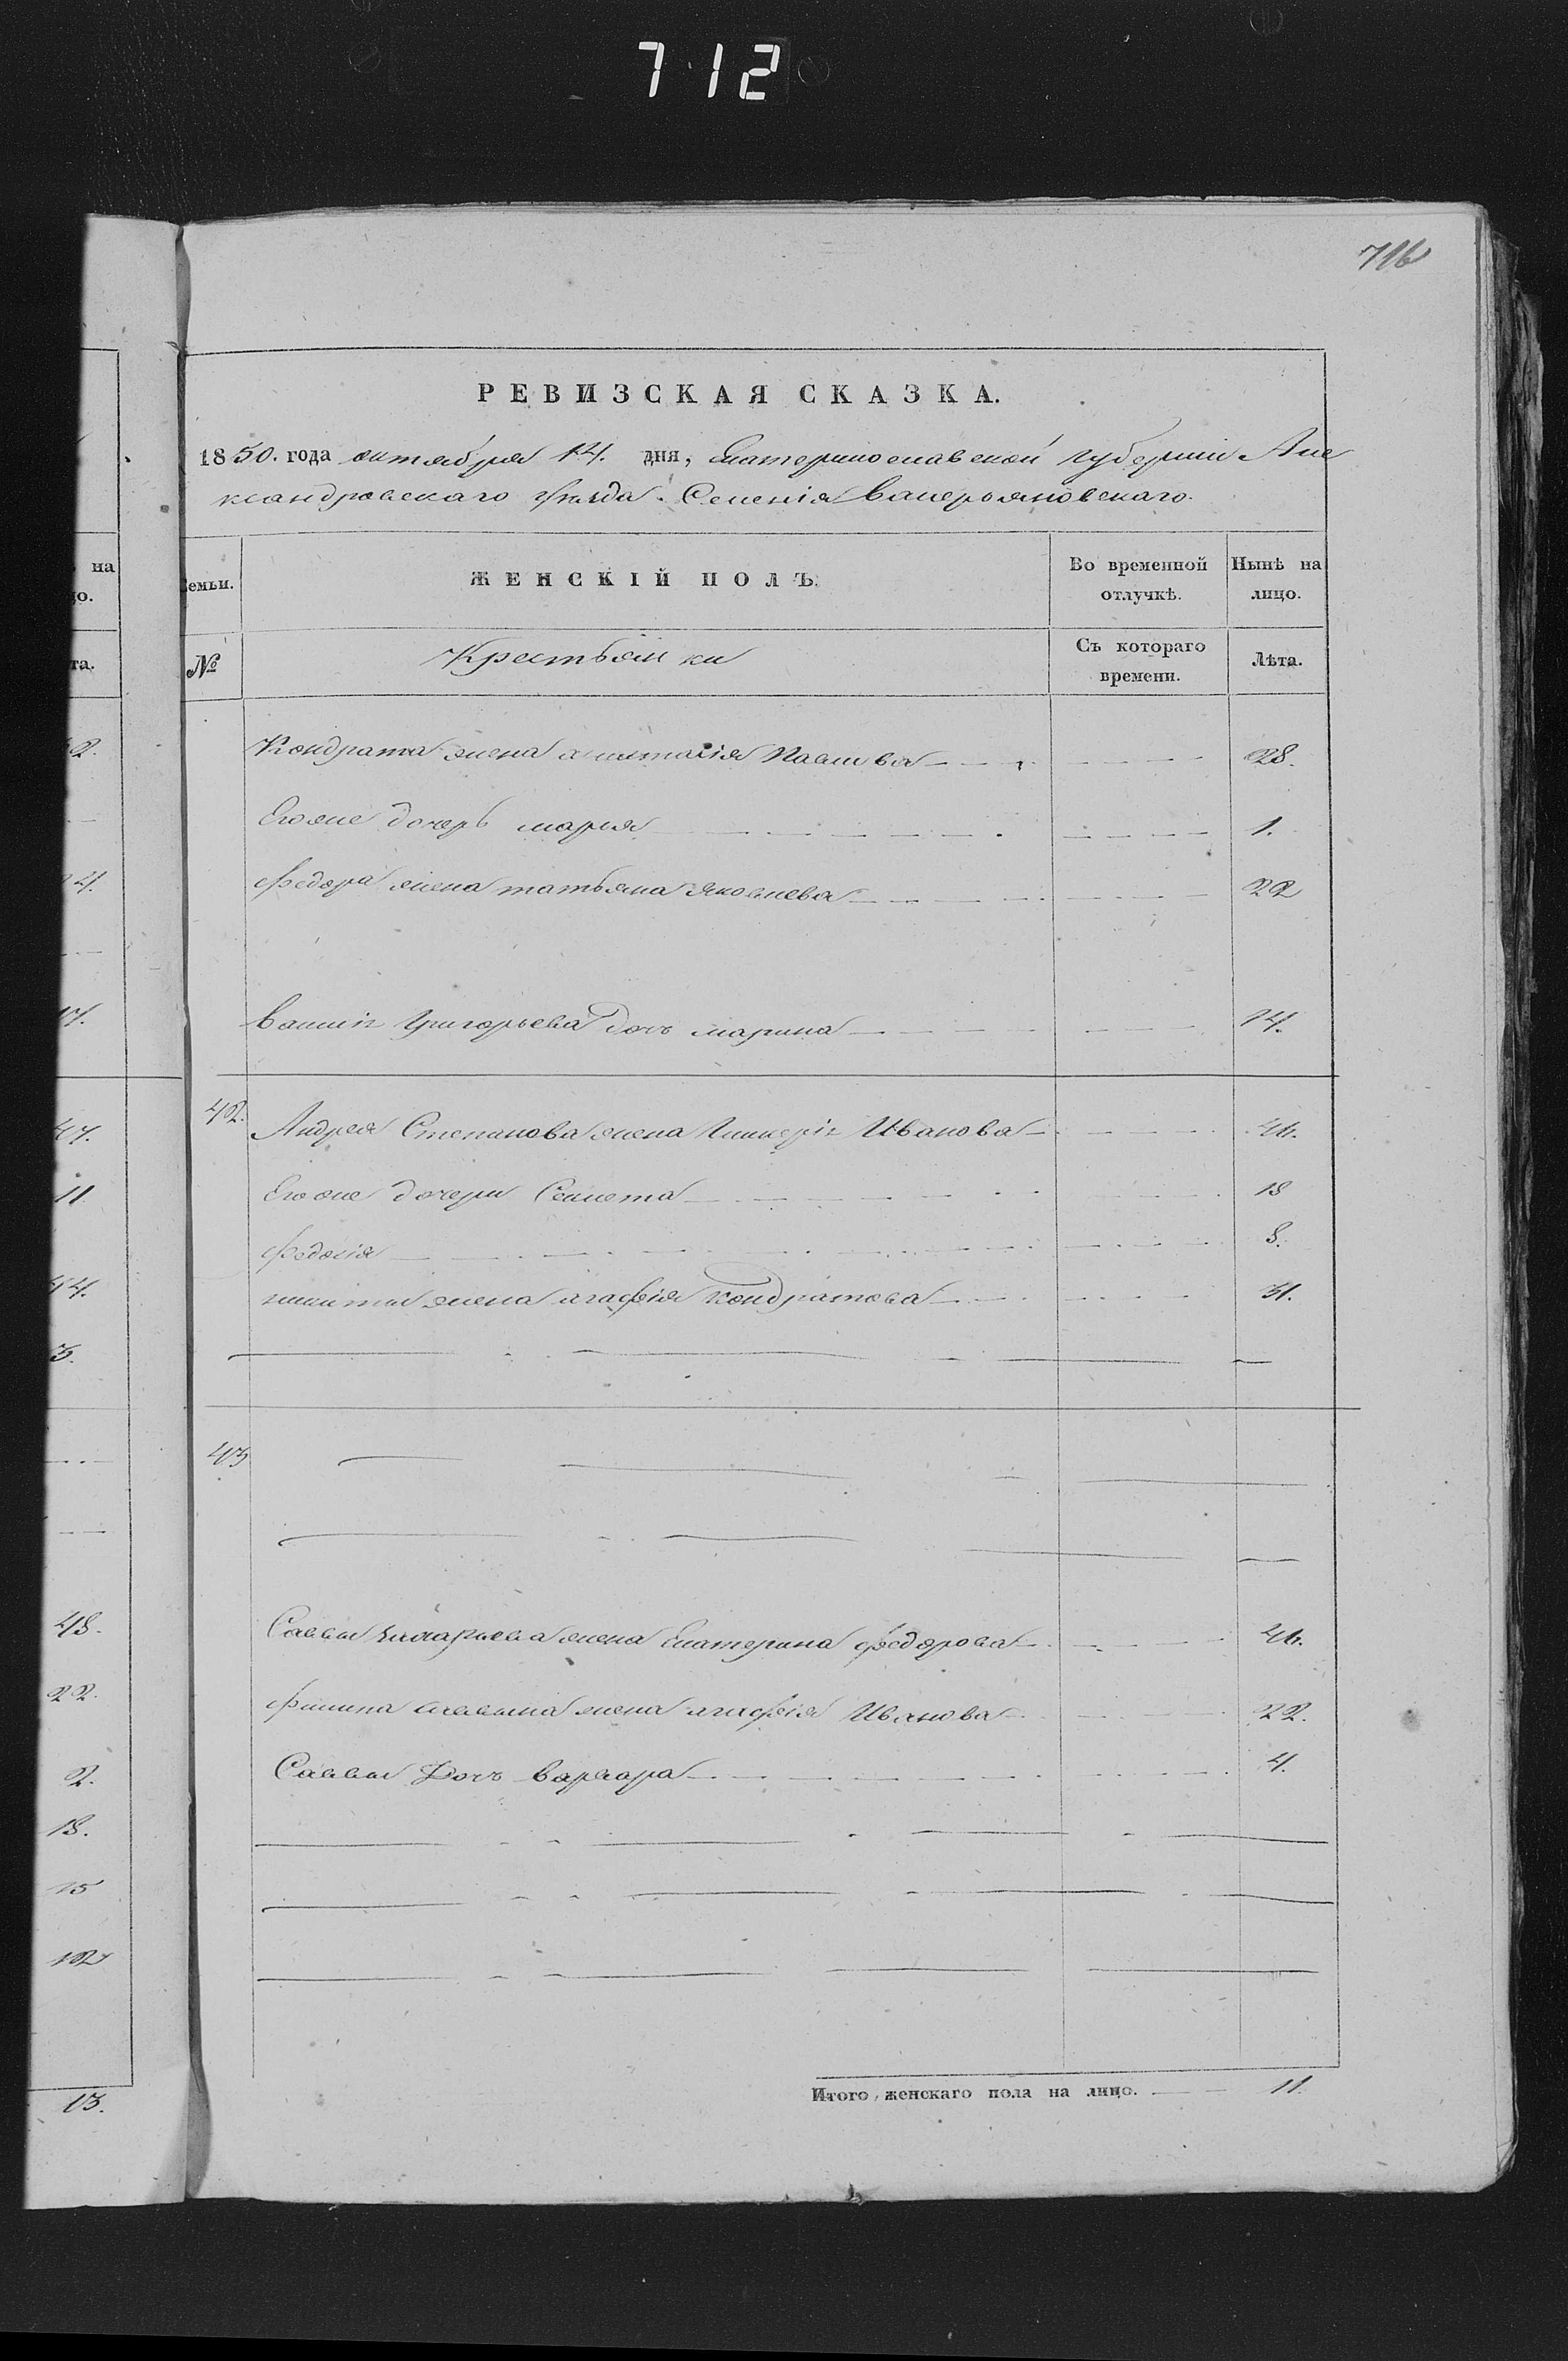 712
716
на
цо.
та.
2.
4.
17.
47.
11
44.
3.
48.
22.
2.
18.
15
12
13.
РЕВИЗСКАЯ СКАЗКА.
1850. года октября 14. дня, Екатеринославской губерніи Але
ксандровскаго уѣзда. Селенія Валерьяновскаго.
Семьи. ЖЕНСКІЙ ПОЛЪ. Во временной отлучкѣ. Нынѣ на лицо.
№ Крестьянки Съ котораго времени. Лѣта.
Кондрата жена Анастасія Павлова 28.
Его же дочерь Марья 1.
Федора жена Татьяна Яковлева 22
Григорьева дочь Марина 14.
42. Андрея Степанова жена Гликерія Иванова 46.
Его же дочери 18
Федосія 8.
Никиты жена Агафія Кондратова 31.
43
Саввы жена Екатерина Федорова 46.
Филипа Саввина жена Агафія Иванова 22.
Саввы дочь Варвара 4.
Итого женскаго пола на лицо. 11.